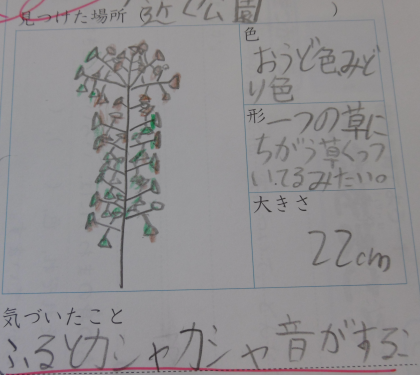 見つけた場所(近く公園)
色
おうど色、みど
り色
形一つの草に
ちがう草くっつ
いてるみたい。
大きさ
22cm
気づいたこと
ふるとカシャカシャ音がする